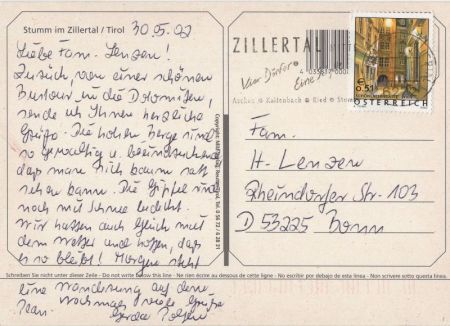 Stumm im Zillertal / Tirol
30.05.02
Liebe Fam. Lenzen!
Zurück von einer schönen
Bustour in die Dolomiten,
sende ich Ihnen herzliche
Grüße. Die hohen Berge sind
so gewaltig u. beeindruckend
dass man sich kaum satt
sehen kann. Die Gipfel sind
noch mit Schnee bedeckt.
Wir hatten auch Glück mit
dem Wetter und hoffen, daß
es so bleibt! Morgen steht
eine Wanderung auf dem
nochmals viele Grüße
Gerda
ZILLERTAL
Vier Dörfer
Eine
Aschau Kaltenbach Ried Stumm
€ 0,51
ÖSTERREICH
Fam.
H. Lenzen
Rheindorfer Str. 103
D 53225 Bonn
Schreiben Sie nicht unter dieser Zeile - Do not write below this line - Ne rien écrire au dessous de cette ligne - No escribir por debajo de esta linea - Non scrivere sotto questa linea.